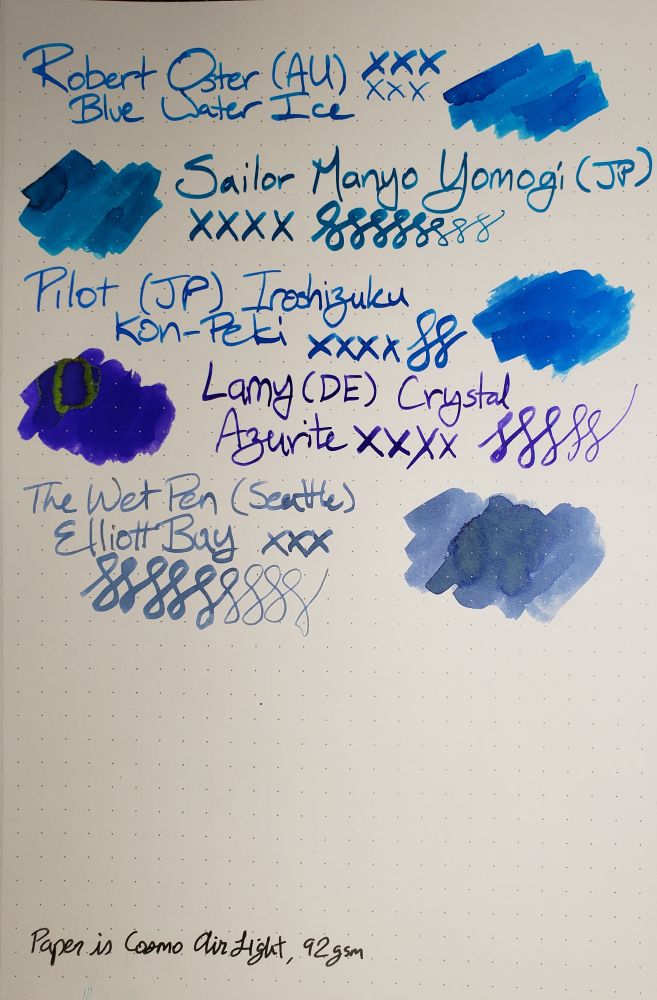 Robert Oster (AU) xxx
xxx
Blue Water Ice
Sailor Manyo Yomogi (JP)
xxxx
Pilot (JP) Iroshizuku
Kon-Peki xxxx
Lamy (DE) Crystal
Azurite xxxx
The Wet Pen (Seattle)
Elliott Bay xxx
Paper is Cosmo Air Light, 92gsm